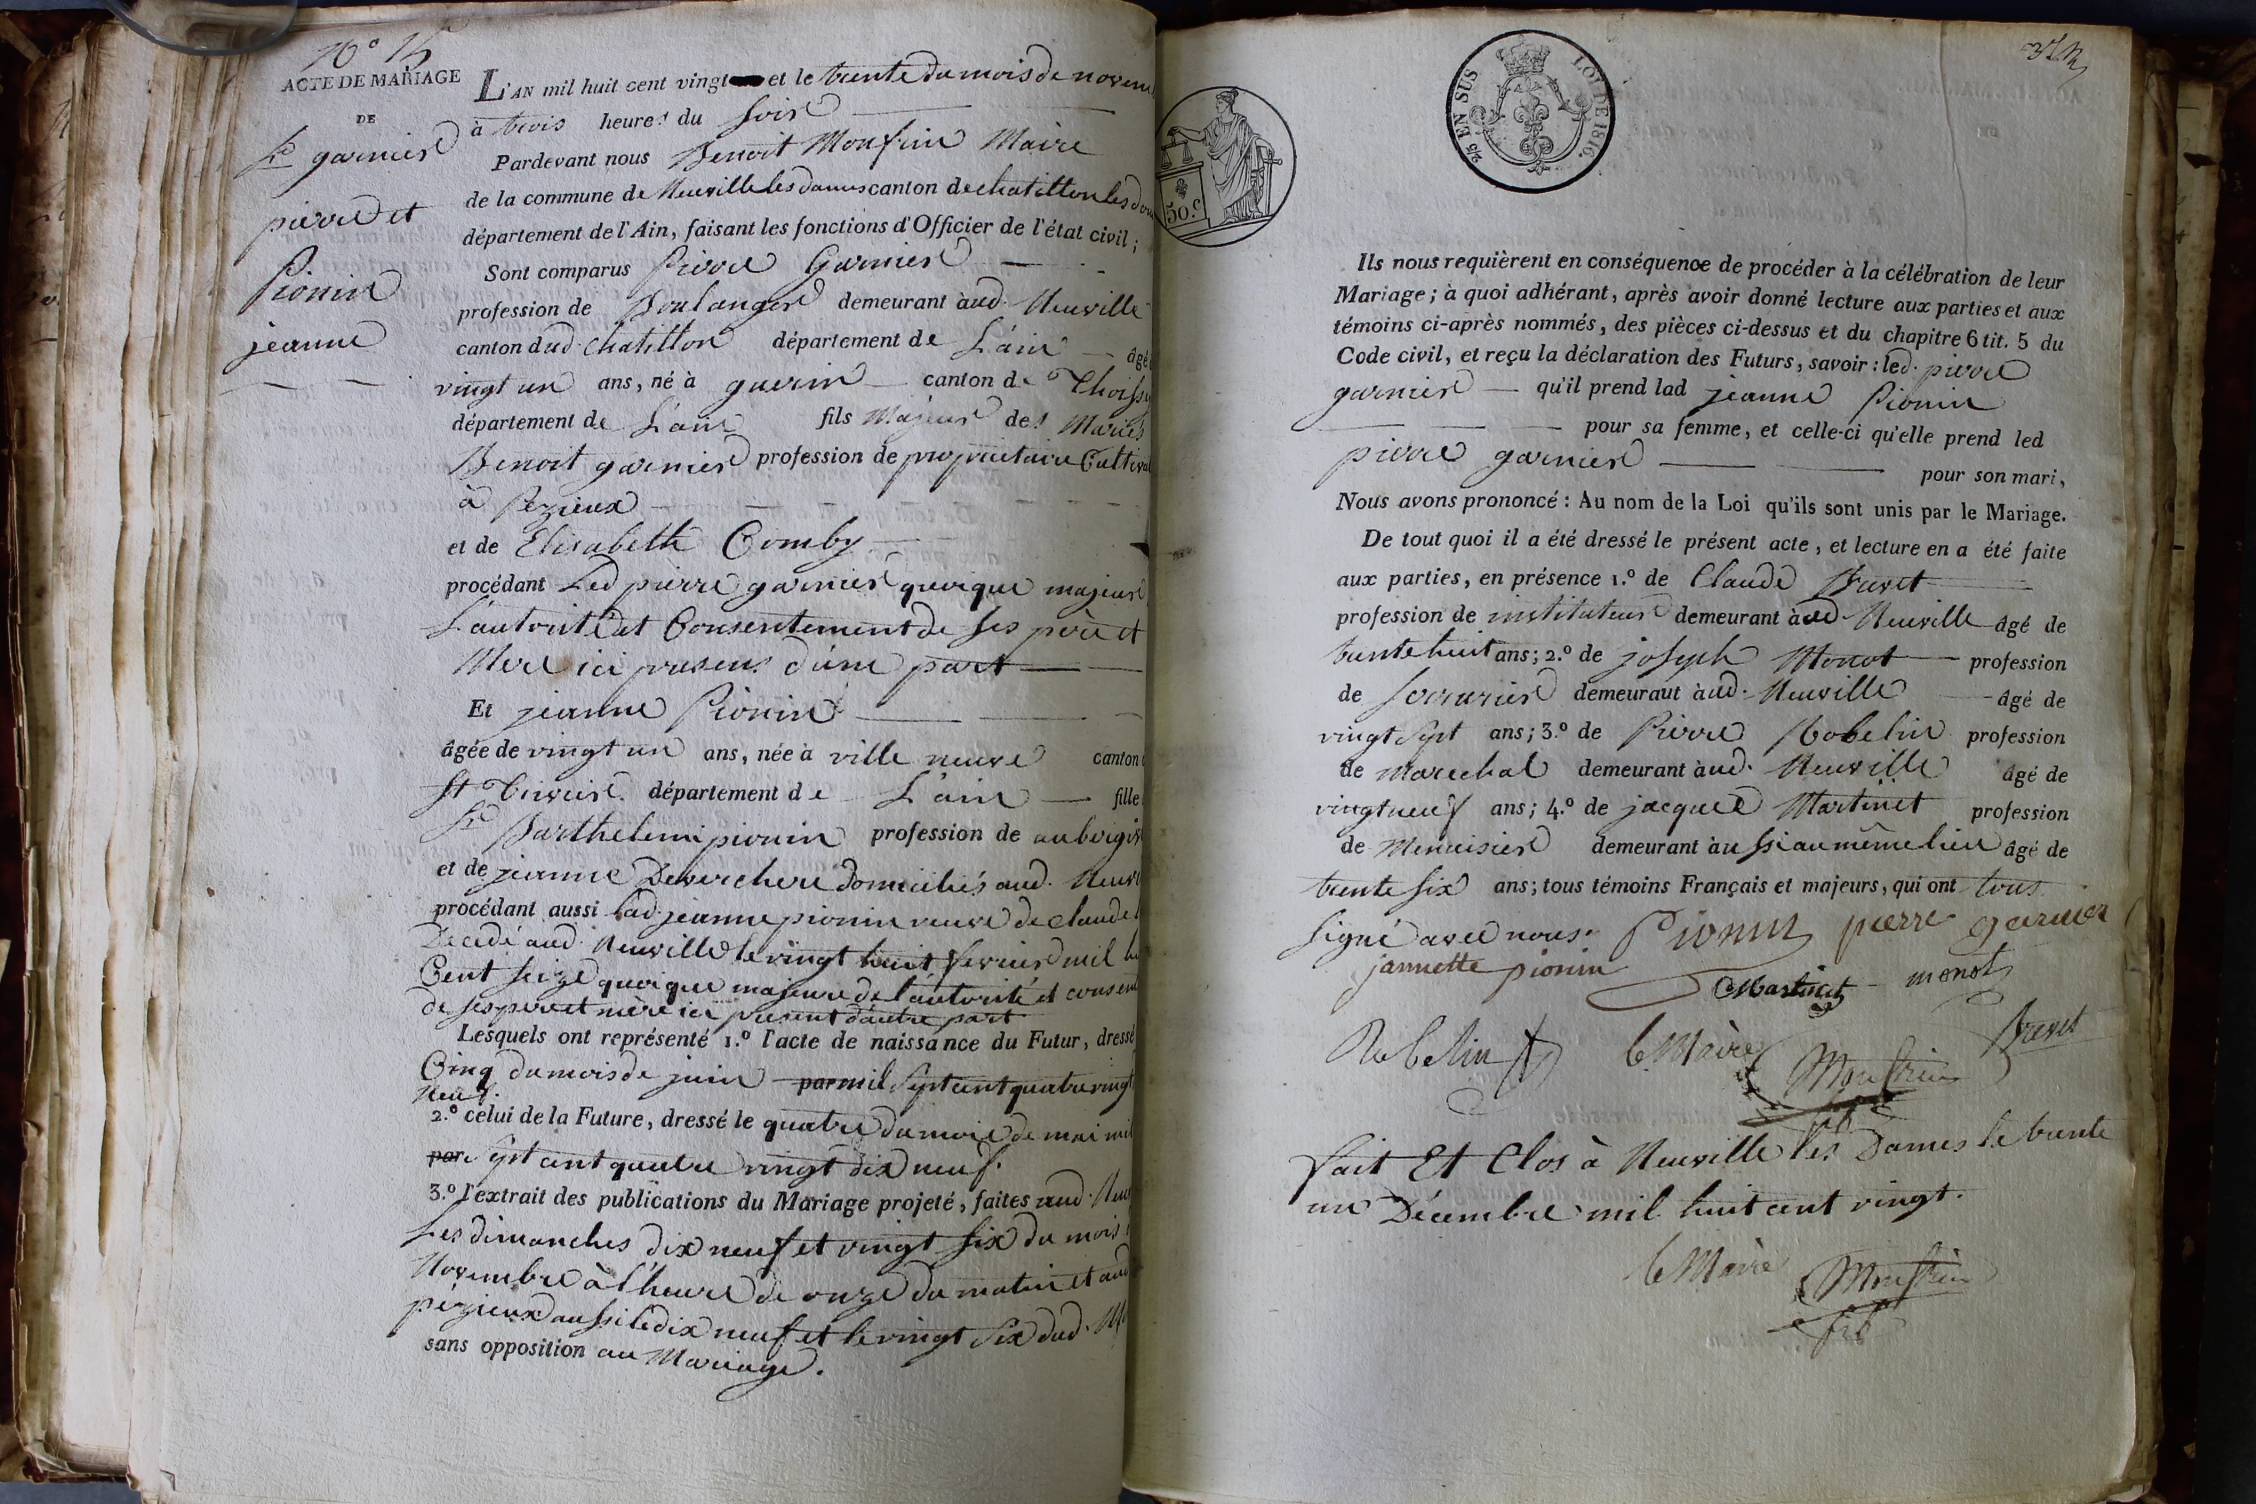 N° 15
ACTE DE MARIAGE
DE
Sr garnier
pierre et
Pionin
jeanne
L'AN mil huit cent vingt et le trente du mois de novem
à trois heures du soir
Pardevant nous Benoit Monfrin Maire
de la commune de Neuville les dames canton de chatillon les dom
département de l'Ain, faisant les fonctions d'Officier de l'état civil ;
Sont comparus Pierre Garnier
profession de Boulanger demeurant aud. Neuville
canton dud chatillon département de L'ain âgé
vingt un ans, né à guerin canton de Thoiss
département de L'ain fils Majeur des Mariés
Benoit garnier profession de propriétaire Cultiva
à Pezieux
et de Elisabeth Comby
procédant Led pierre garnier quoique majeur
L'autorité et Consentement de ses père et
Mere ici presens d'une part
Et jeanne Pionin
âgée de vingt un ans, née à ville neuve canton
St Trivier. département de L'ain fille
Sr Barthelemi pionin profession de aubergis
et de jeanne Deverchere domiciliés aud. Neuv
procédant aussi Lad. jeanne pionin veuve de claude
Decedé aud. Neuville le vingt huit fevrier mil hu
Cent seize quoique majeure de l'autorité et consent
de ses pere et mère ici present d'autre part
Lesquels ont représenté 1.° l'acte de naissance du Futur, dressé
Cinq du mois de juin par mil sept cent quatre vingt
Neuf.
2.° celui de la Future, dressé le quatre du mois de mai mil
par sept cent quatre vingt dix neuf.
3.° l'extrait des publications du Mariage projeté, faites aud. Neu
Les dimanches dix neuf et vingt six du mois
Novembre à l'heure de onze du matin et aud
pézieux aussi le dix neuf et le vingt six dud.
sans opposition au Mariage.
50.c
2/5 EN SUS
LOI DE 1816.
Ils nous requièrent en conséquence de procéder à la célébration de leur
Mariage ; à quoi adhérant, après avoir donné lecture aux parties et aux
témoins ci-après nommés, des pièces ci-dessus et du chapitre 6 tit. 5 du
Code civil, et reçu la déclaration des Futurs, savoir : led. pierre
garnier qu'il prend lad jeanne Pionin
pour sa femme, et celle-ci qu'elle prend led
pierre garnier
pour son mari,
Nous avons prononcé : Au nom de la Loi qu'ils sont unis par le Mariage.
De tout quoi il a été dressé le présent acte, et lecture en a été faite
aux parties, en présence 1.° de Claude Brevet
profession de instituteur demeurant aud Neuville âgé de
trente huit ans ; 2.° de joseph Monot profession
de serrurier demeuraut aud. Neuville âgé de
vingt sept ans ; 3.° de Pierre Robelin profession
de marechal demeurant aud. Neuville âgé de
vingt neuf ans ; 4.° de jacque Martinet profession
de Menuisier demeurant aussi au même lieu âgé de
trente six ans ; tous témoins Français et majeurs, qui ont tous
signé avec nous. Pionin pierre garnier
jannette pionin
Martinet monot
Robelin le Maire Monfrin Brevet
fait Et Clos à Neuville les Dames le trente
un Décembre mil huit cent vingt.
le Maire Monfrin